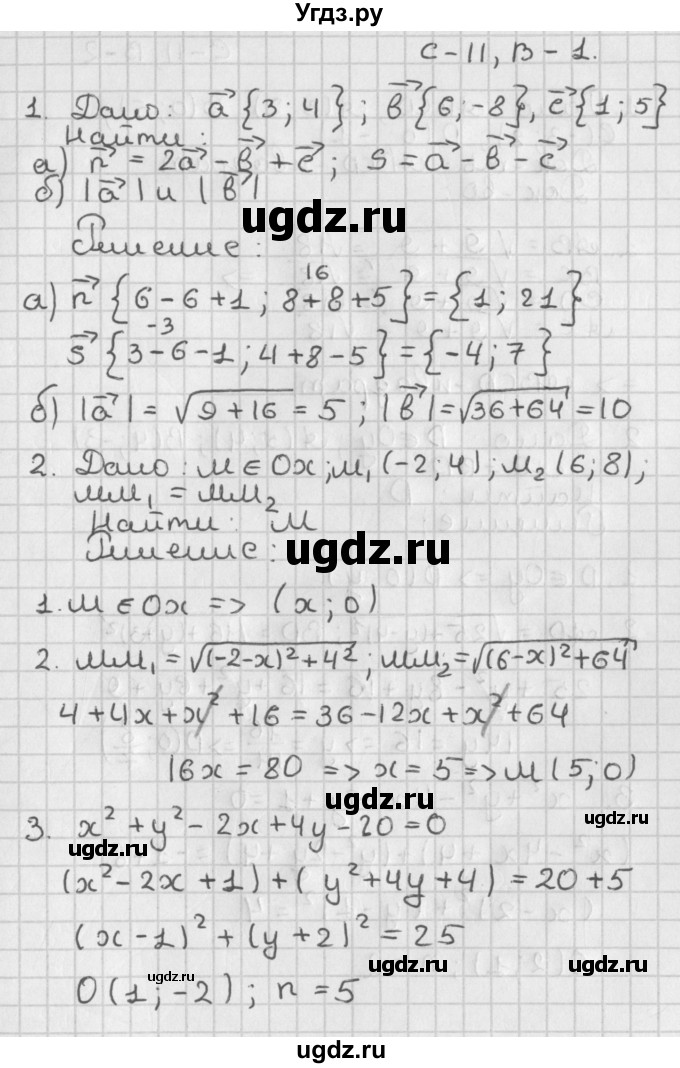 Угдз.ру
С-11, В-1.
1. Дано: a⃗ {3; 4}; b⃗ {6; -8}, c⃗ {1; 5}
Найти:
а) n⃗ = 2a⃗ - b⃗ + c⃗; s = a⃗ - b⃗ - c⃗
б) |a⃗| и |b⃗|
ugdz.ru
Решение:
16
а) n⃗ {6-6+1; 8+8+5} = {1; 21}
-3
s⃗ {3-6-1; 4+8-5} = {-4; 7}
б) |a⃗| = √(9+16) = 5; |b⃗| = √(36+64) = 10
ugdz.ru
2. Дано: M∈Ox; M₁(-2; 4); M₂(6; 8);
MM₁ = MM₂
Найти: M
Решение:
ugdz.ru
1. M∈Ox => (x; 0)
2. MM₁ = √((-2-x)²+4²); MM₂ = √((6-x)²+64)
4+4x+x²+16 = 36-12x+x²+64
16x = 80 => x = 5 => M(5; 0)
ugdz.ru
ugdz.ru
3. x²+y²-2x+4y-20=0
ugdz.ru
(x²-2x+1)+(y²+4y+4) = 20+5
(x-1)²+(y+2)² = 25
ugdz.ru
ugdz.ru
O(1; -2); r = 5
ugdz.ru